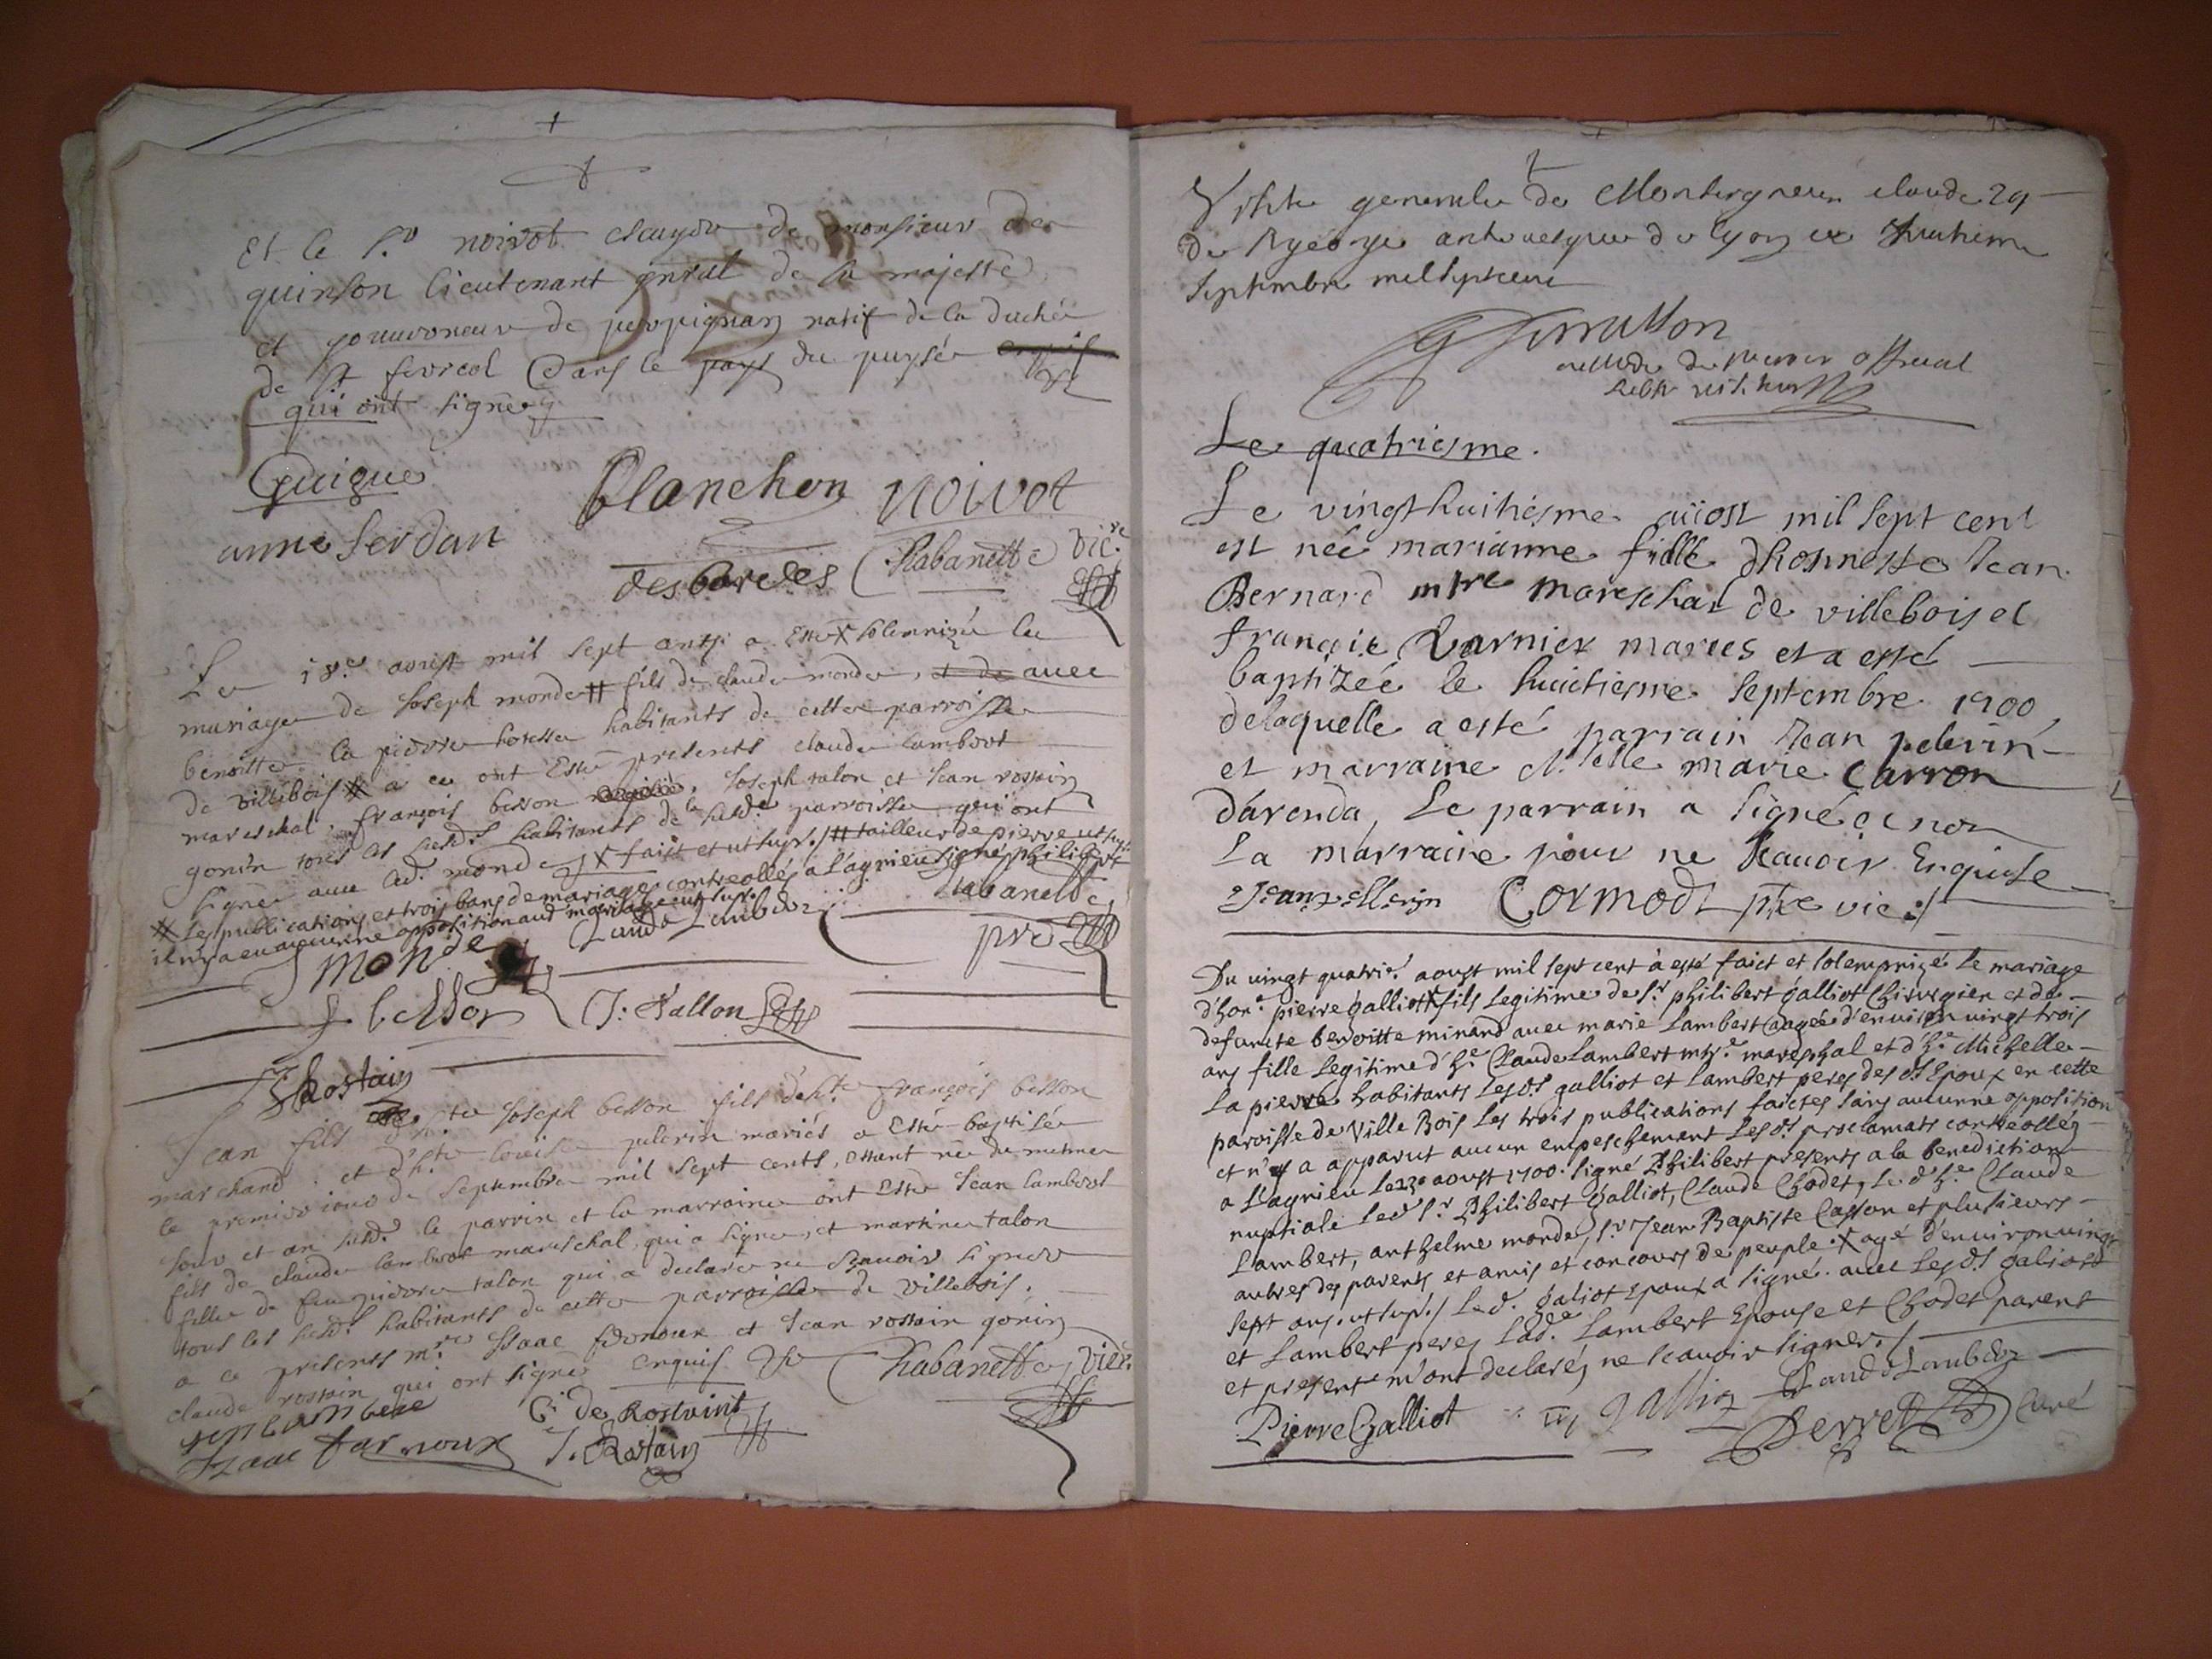 Et le S.r noivot escuyer de monsieur de
quinson lieutenant gnral de sa majesté
et gouuerneur de perpignan natif de la duché
de St fereol dans le pays du puysée
qui ont signe
Guigue
Planchon noivot
anne serdan
desbordes Rabanette vic.re
Le 18.e aoust mil sept cents a Esté X solemnizée le
mariage de Joseph monde # fils de claude monde, et de auec
benoitte la pierre hotesse habitants de cette parroisse
de villebois ӿ a ce ont Esté presents claude lambert
mareschal, françois besson, Joseph talon et Jean rostain
gonin tous les susd.s habitants de la susd.e parroisse qui ont
signée auec led. monde X faict et ut supr./ # tailleur de pierre ut supr.
ӿ les publications et trois bans de mariage controllés a L'agnieu signé philibert
il ny a eu aucunne opposition aud mariage ut supr.
Rabanette
Claude Lambert
pre
monde
f. besson J. Tallon
Rostain
Jean fils d'h.te Joseph besson fils d'eh.te françois besson
marchand. et d'h.te louise pelerin mariés a Esté baptisée
le premier iour de septembre mil sept cents, estant née du mesme
iour et an susd. le parrin et la marraine ont Esté Jean lambert
fils de claude lambert mareschal, qui a signé, et martine talon
fille de feu pierre talon qui a declaré ne scauoir signer
tous les susd.s habitants de cette parroisse de villebois.
a ce presents m.re Isaac fornoux et Jean rostain gonin
claude rostain qui ont signé enquis Rabanette, vic.re
jenlambere C. de Rostaint
Izaac farnoux J. Rostain
Visitte generale de Monseigneur claude de
De St george archeuesque de lyon ce huitieme
Septembre mil sept cent
Le quatriesme.
Le vingthuitiesme aüost mil sept cent
est née marianne fille dhonneste Jean
Bernard mtre mareschal de villebois et
françoise Varnier mariés et a esté
baptizée le huictiesme septembre 1700
de laquelle a esté parrain Jean pelerin
et marraine d.lle marie Carron
d'arenda, Le parrain a signé et non
La marraine pour ne scauoir Enquise
Jean pellerin Cormod ptre vic./
Du vingt quatrie. aoust mil sept cent à esté faict et solempnizé le mariage
d'hon.e pierre galliot X fils legitime de s.r philibert galliot chirurgien et de
defuncte benoitte minand auec marie Lambert aagée d'enuiron vingt trois
ans fille legitime d'h.e Claude Lambert mtr.e mareschal et d'h.e Michelle
La pierre habitants Lesd.s galliot et Lambert peres des d.s Epoux en cette
paroisse de Ville Bois Les trois publications faictes sans aucunne opposition
et n'y a apparut aucun empeschement Lesd.s proclamats controllés
a L'agnieu le 23e aoust 1700. signé Philibert presents a la benediction
nuptiale Led. s.r Philibert Galliot, Claude Chodet, Led. h.e Claude
Lambert, anthelme monde, s.r Jean Baptiste Casson et plusieurs
autres des parents et amis et concours de peuple. X agé d'enuiron vingt
sept ans. ut supr./ Led. galiot Epoux a signé. auec Lesd.s galiot
et Lambert peres Lad.e Lambert Epouse et Chodet parent
et present m'ont declarés ne scauoir signer./
Pierre Galliot Claude Lambert
Perret Curé